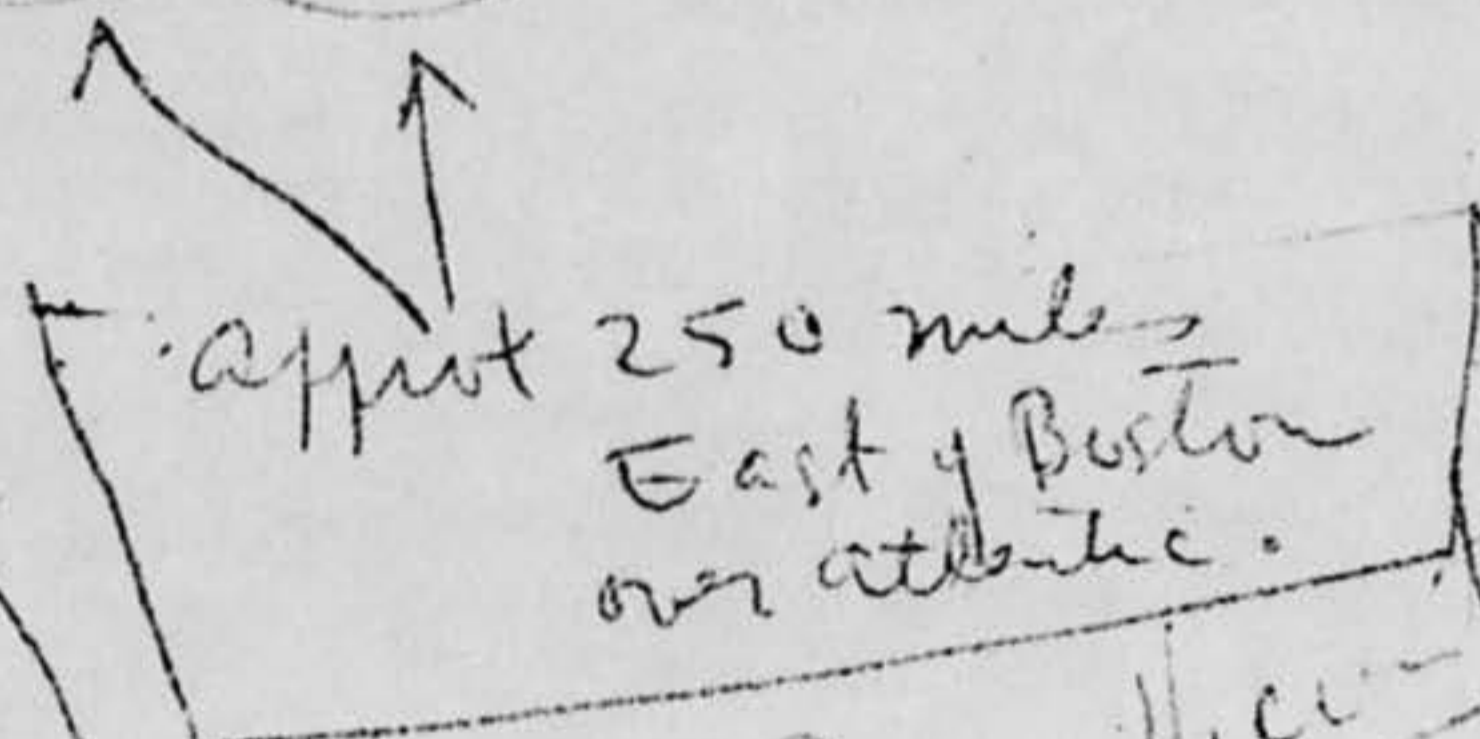 approx 250 miles
East of Boston
over atlantic.